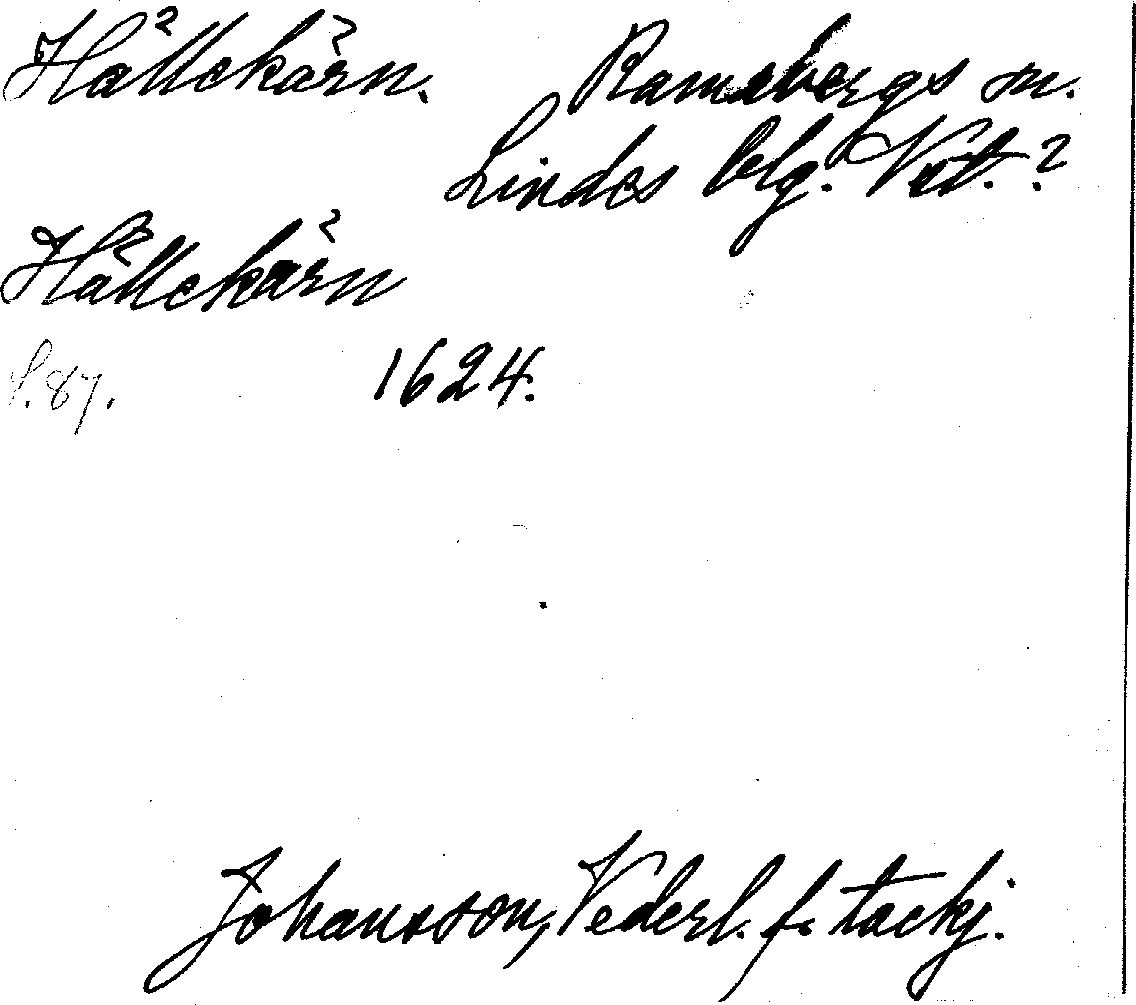 Hällekärn. Ramsbergs sn.
Lindes blg. Vstm.?
Hällekärn
S. 87. 1624.
Johansson, Vederl. f. tackj.